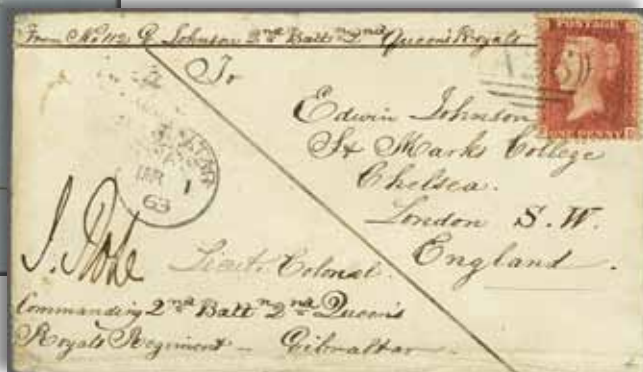 From No 112 G Johnson 2nd Batt n 2nd Queen's Royals
To
Edwin Johnson
St Marks College
Chelsea.
London S.W.
England.
POSTAGE
ONE PENNY
A26
MR 1
63
Lieut. Colonel.
Commanding 2nd Battn 2nd Queen's
Royals Regiment - Gibraltar -